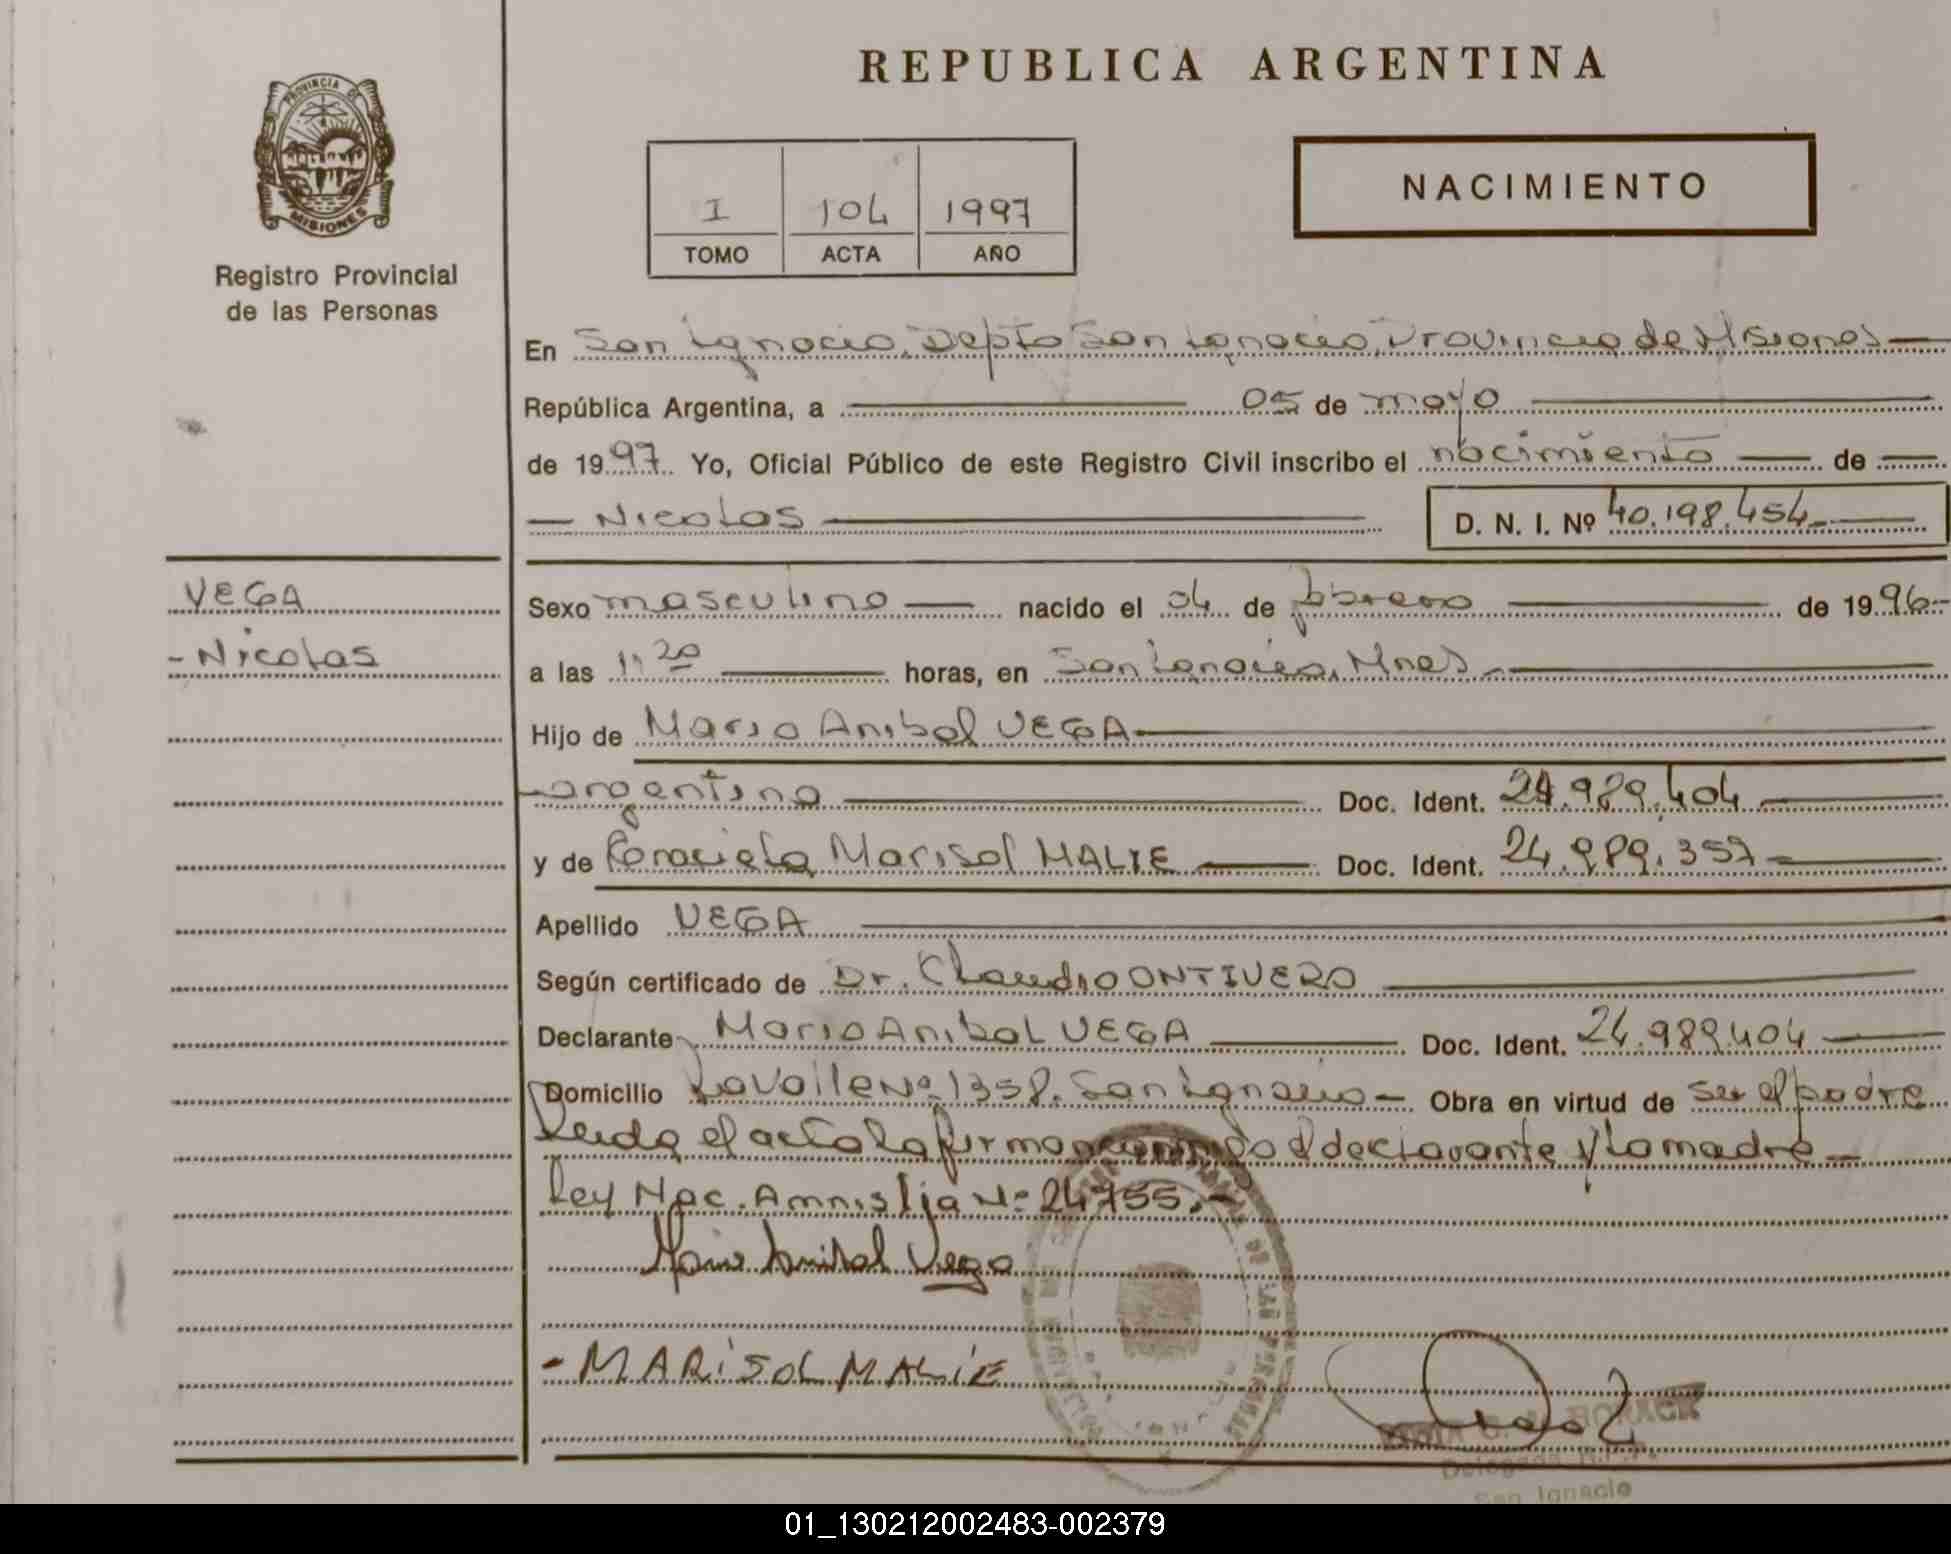 REPUBLICA ARGENTINA
PROVINCIA DE
MISIONES
Registro Provincial
de las Personas
I 104 1997
TOMO ACTA AÑO
NACIMIENTO
En San Ignacio, Depto San Ignacio, Provincia de Misiones
República Argentina, a 05 de mayo
de 1997 Yo, Oficial Público de este Registro Civil inscribo el nacimiento de
Nicolas D. N. I. Nº 40.198.454
VEGA
- Nicolas
Sexo masculino nacido el 04 de febrero de 1996
a las 11:20 horas, en San Ignacio, Mnes
Hijo de Mario Anibal VEGA
argentino Doc. Ident. 24.989.404
y de Graciela Marisol MALIE Doc. Ident. 24.989.357
Apellido VEGA
Según certificado de Dr. Claudio ONTIVERO
Declarante Mario Anibal VEGA Doc. Ident. 24.989.404
Domicilio Lavalle Nº 1358. San Ignacio Obra en virtud de ser el padre
Leida el acta la firman conmigo el declarante y la madre
Ley Nac. Amnistia Nº 24755.-
Mario Anibal Vega
- MARISOL MALIE
DE LAS PERSONAS
BORACK
Delegada R.P.P.
San Ignacio
01_130212002483-002379